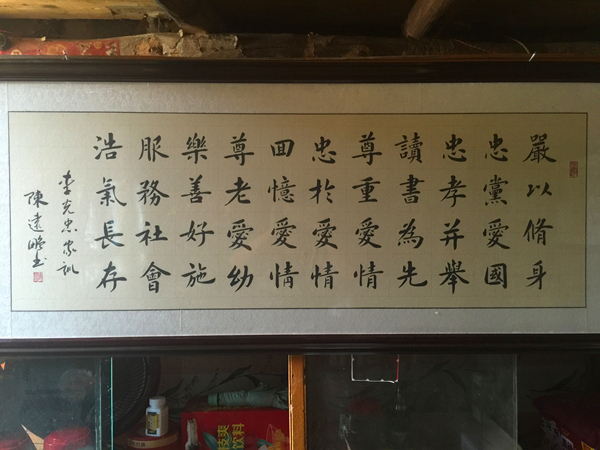 嚴以脩身
忠黨愛國
忠孝并舉
讀書為先
尊重愛情
忠於愛情
回憶愛情
尊老愛幼
樂善好施
服務社會
浩氣長存
李光忠家訓
陳遠
飲料